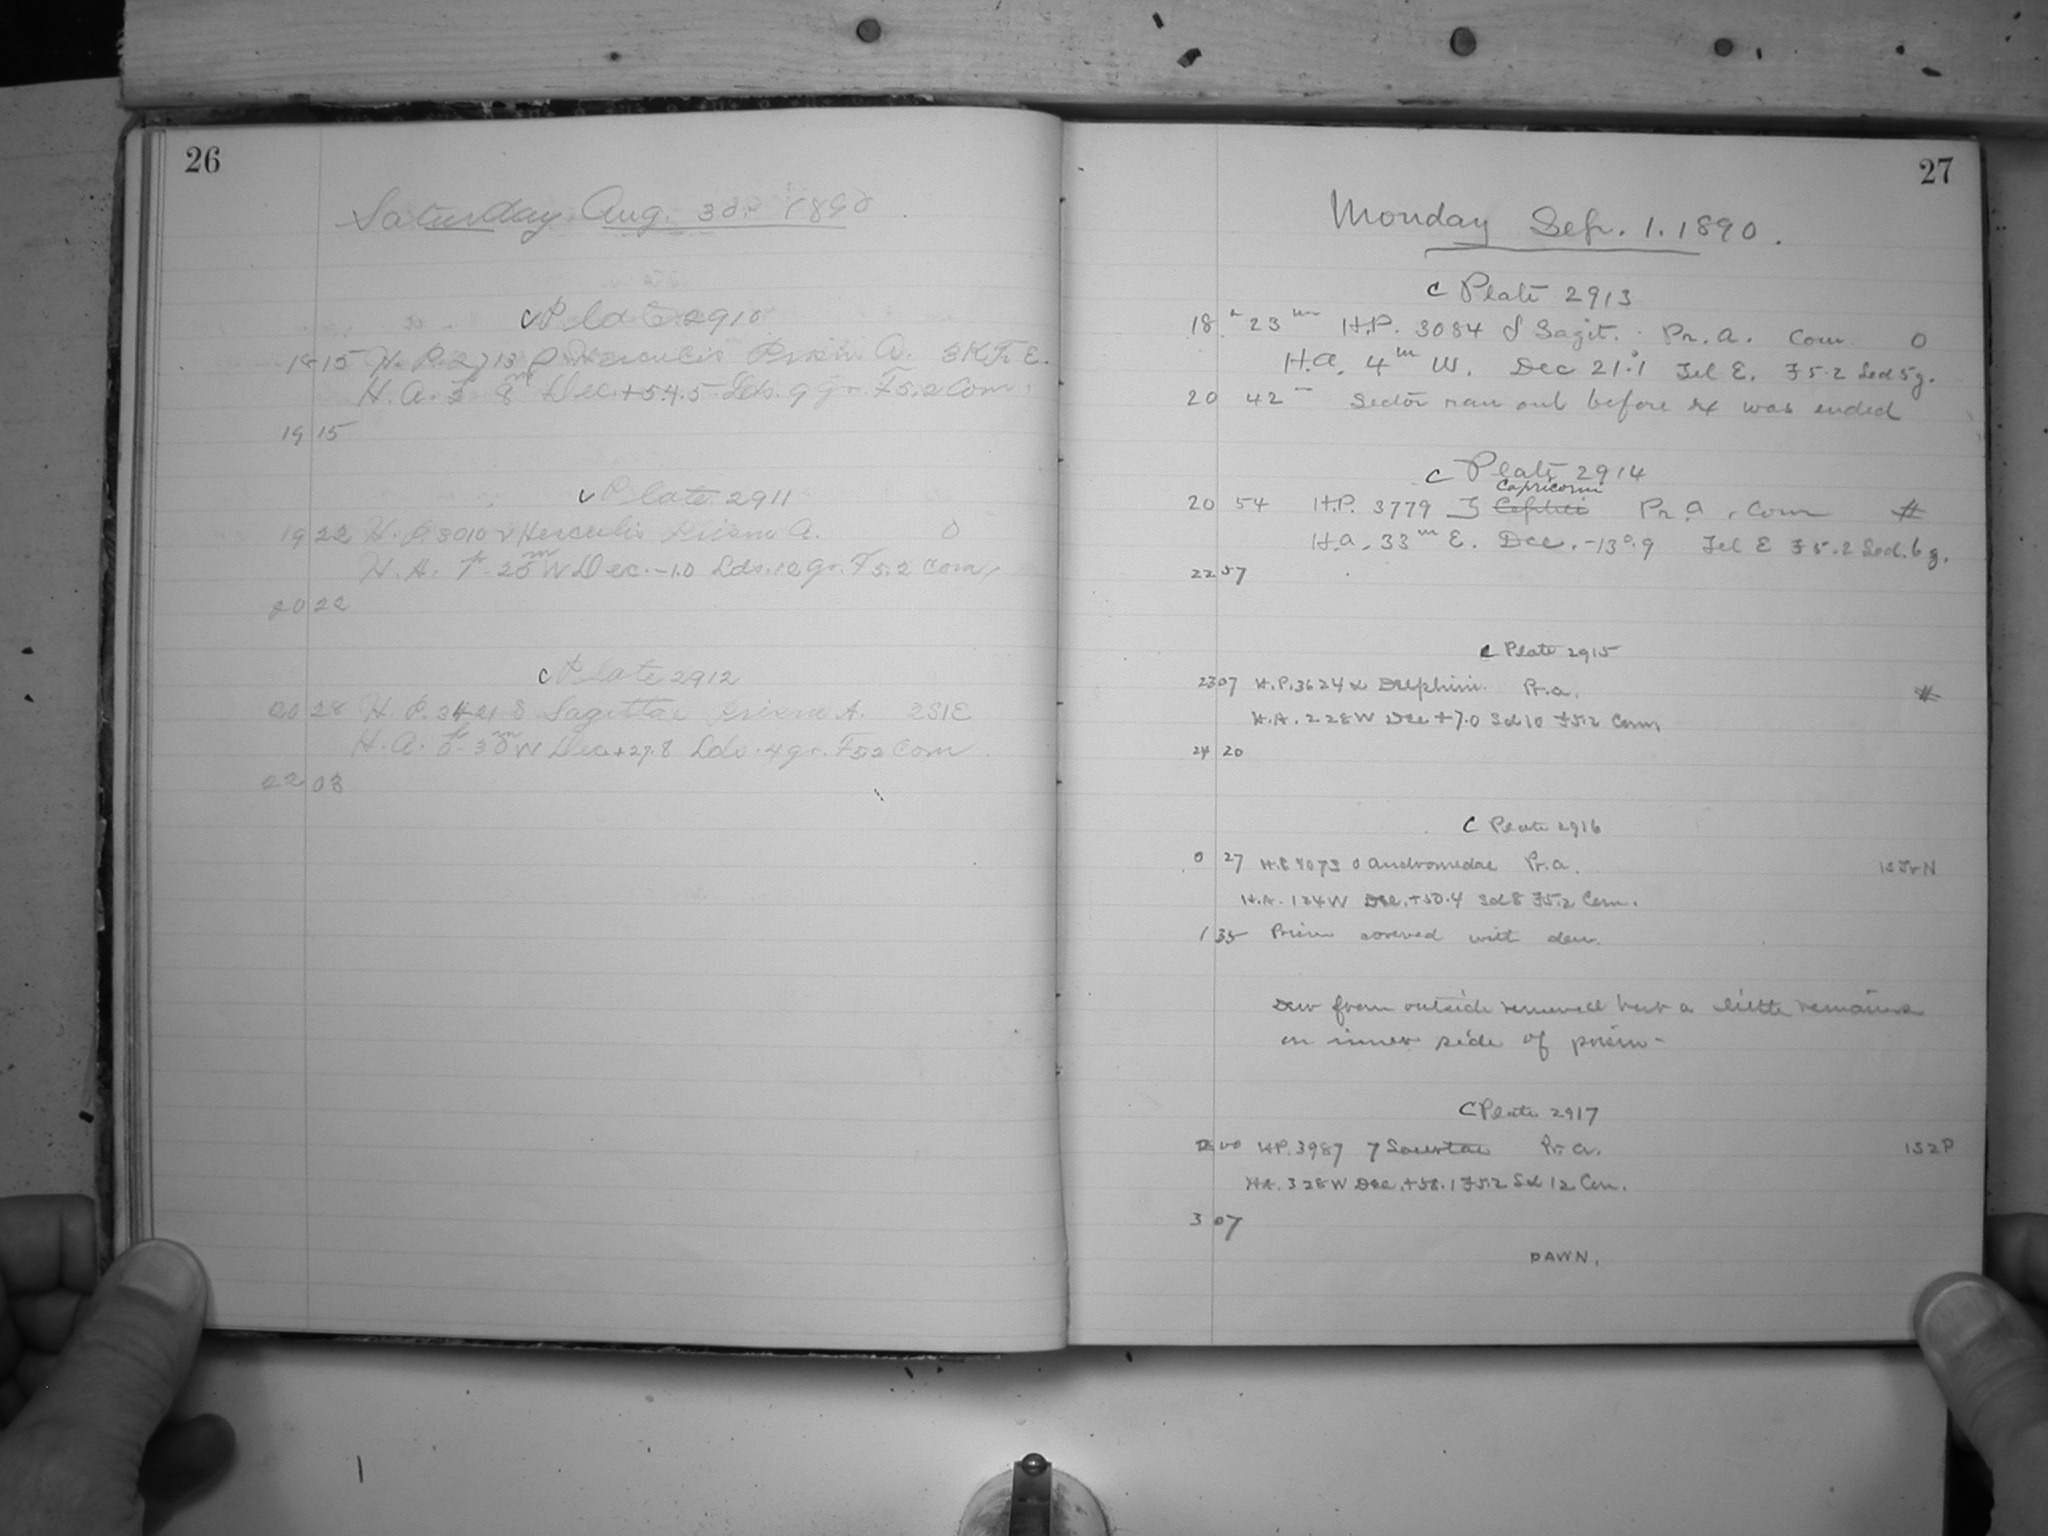 26
Saturday Aug. 30. 1890.
c Plate 2910
18 15 H. P. 2713 Herculis Prism A. E.
H. A. 3 8m Dec. +54.5 Lds. 9 gr. F5.2 Com.
19 15
c Plate 2911
19 22 H. P. 3010 Herculis Prism A. 0
H. A. 1h 20m W Dec. -1.0 Lds. 12 gr. F5.2 Com.
20 22
c Plate 2912
20 28 H. P. 3421 δ Sagittae Prism A. 2S1E
H. A. 0h 30m W Dec. +27.8 Lds. 4 gr. F5.2 Com.
22 03
27
Monday Sep. 1. 1890.
c Plate 2913
18h 23m H.P. 3084 δ Sagit. Pr. A. Com 0
H.A. 4m W. Dec 21°.1 Tel E. F5.2 Sed 5g.
20 42 Sector ran out before Ex was ended
c Plate 2914
Capricorni
20 54 H.P. 3779 ζ Cephei Pr. A. Com #
H.A. 33m E. Dec. -13°.9 Tel E F5.2 Sed. 6g.
22 57
c Plate 2915
23 07 H.P. 3624 α Delphini Pr. a. #
H.A. 2 28 W Dec +7.0 Sd 10 F5.2 Com,
24 20
c Plate 2916
0 27 H.P. 4073 o Andromedae Pr. a.
H.A. 1 24 W Dec. +50.4 Sd 8 F5.2 Com.
1 35 Prism covered with dew.
Dew from outside removed but a little remains
on inner side of prism-
c Plate 2917
2 00 H.P. 3987 7 Lacertae Pr. a. 1S2P
H.A. 3 28 W Dec. +58.1 F5.2 Sd 12 Com.
3 07
DAWN.